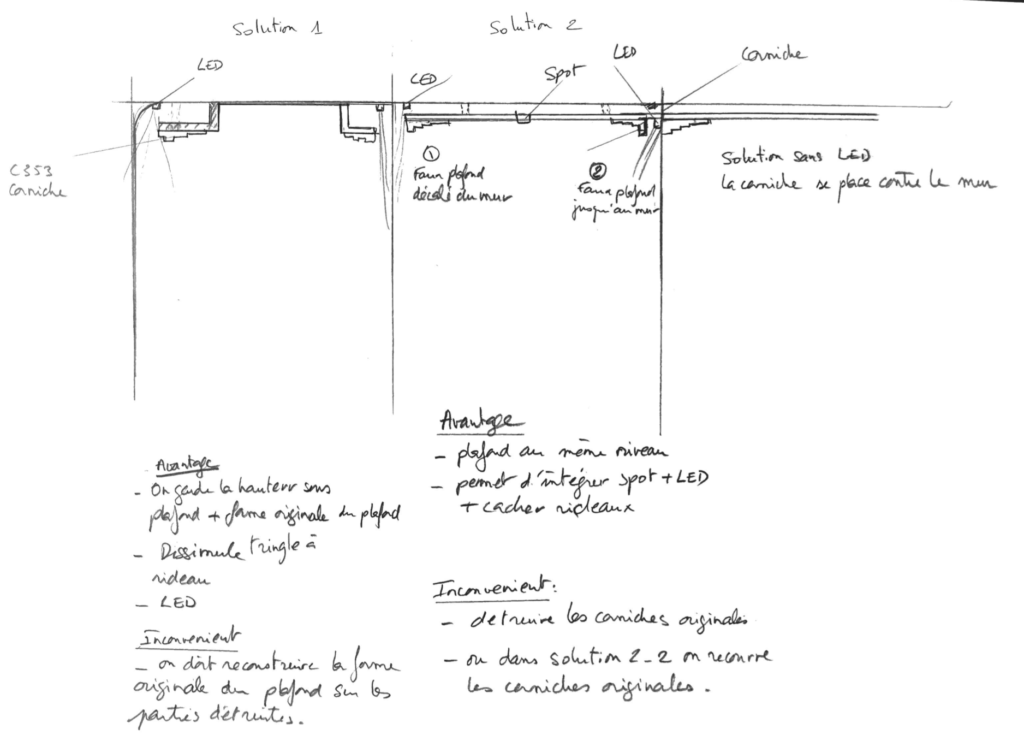 Solution 1
Solution 2
LED
LED
Spot
LED
Corniche
C353
Corniche
①
Faux plafond
décalé du mur
②
Faux plafond
jusqu'au mur
Solution sans LED
la corniche se place contre le mur
Avantage
- On garde la hauteur sous
plafond + forme originale du plafond
- Dissimule tringle à
rideau
- LED
Inconvenient
- on doit reconstruire la forme
originale du plafond sur les
parties détruites.
Avantage
- plafond au même niveau
- permet d'intégrer spot + LED
+ cacher rideaux
Inconvenient :
- détruire les corniches originales
- ou dans solution 2-2 on recouvre
les corniches originales.